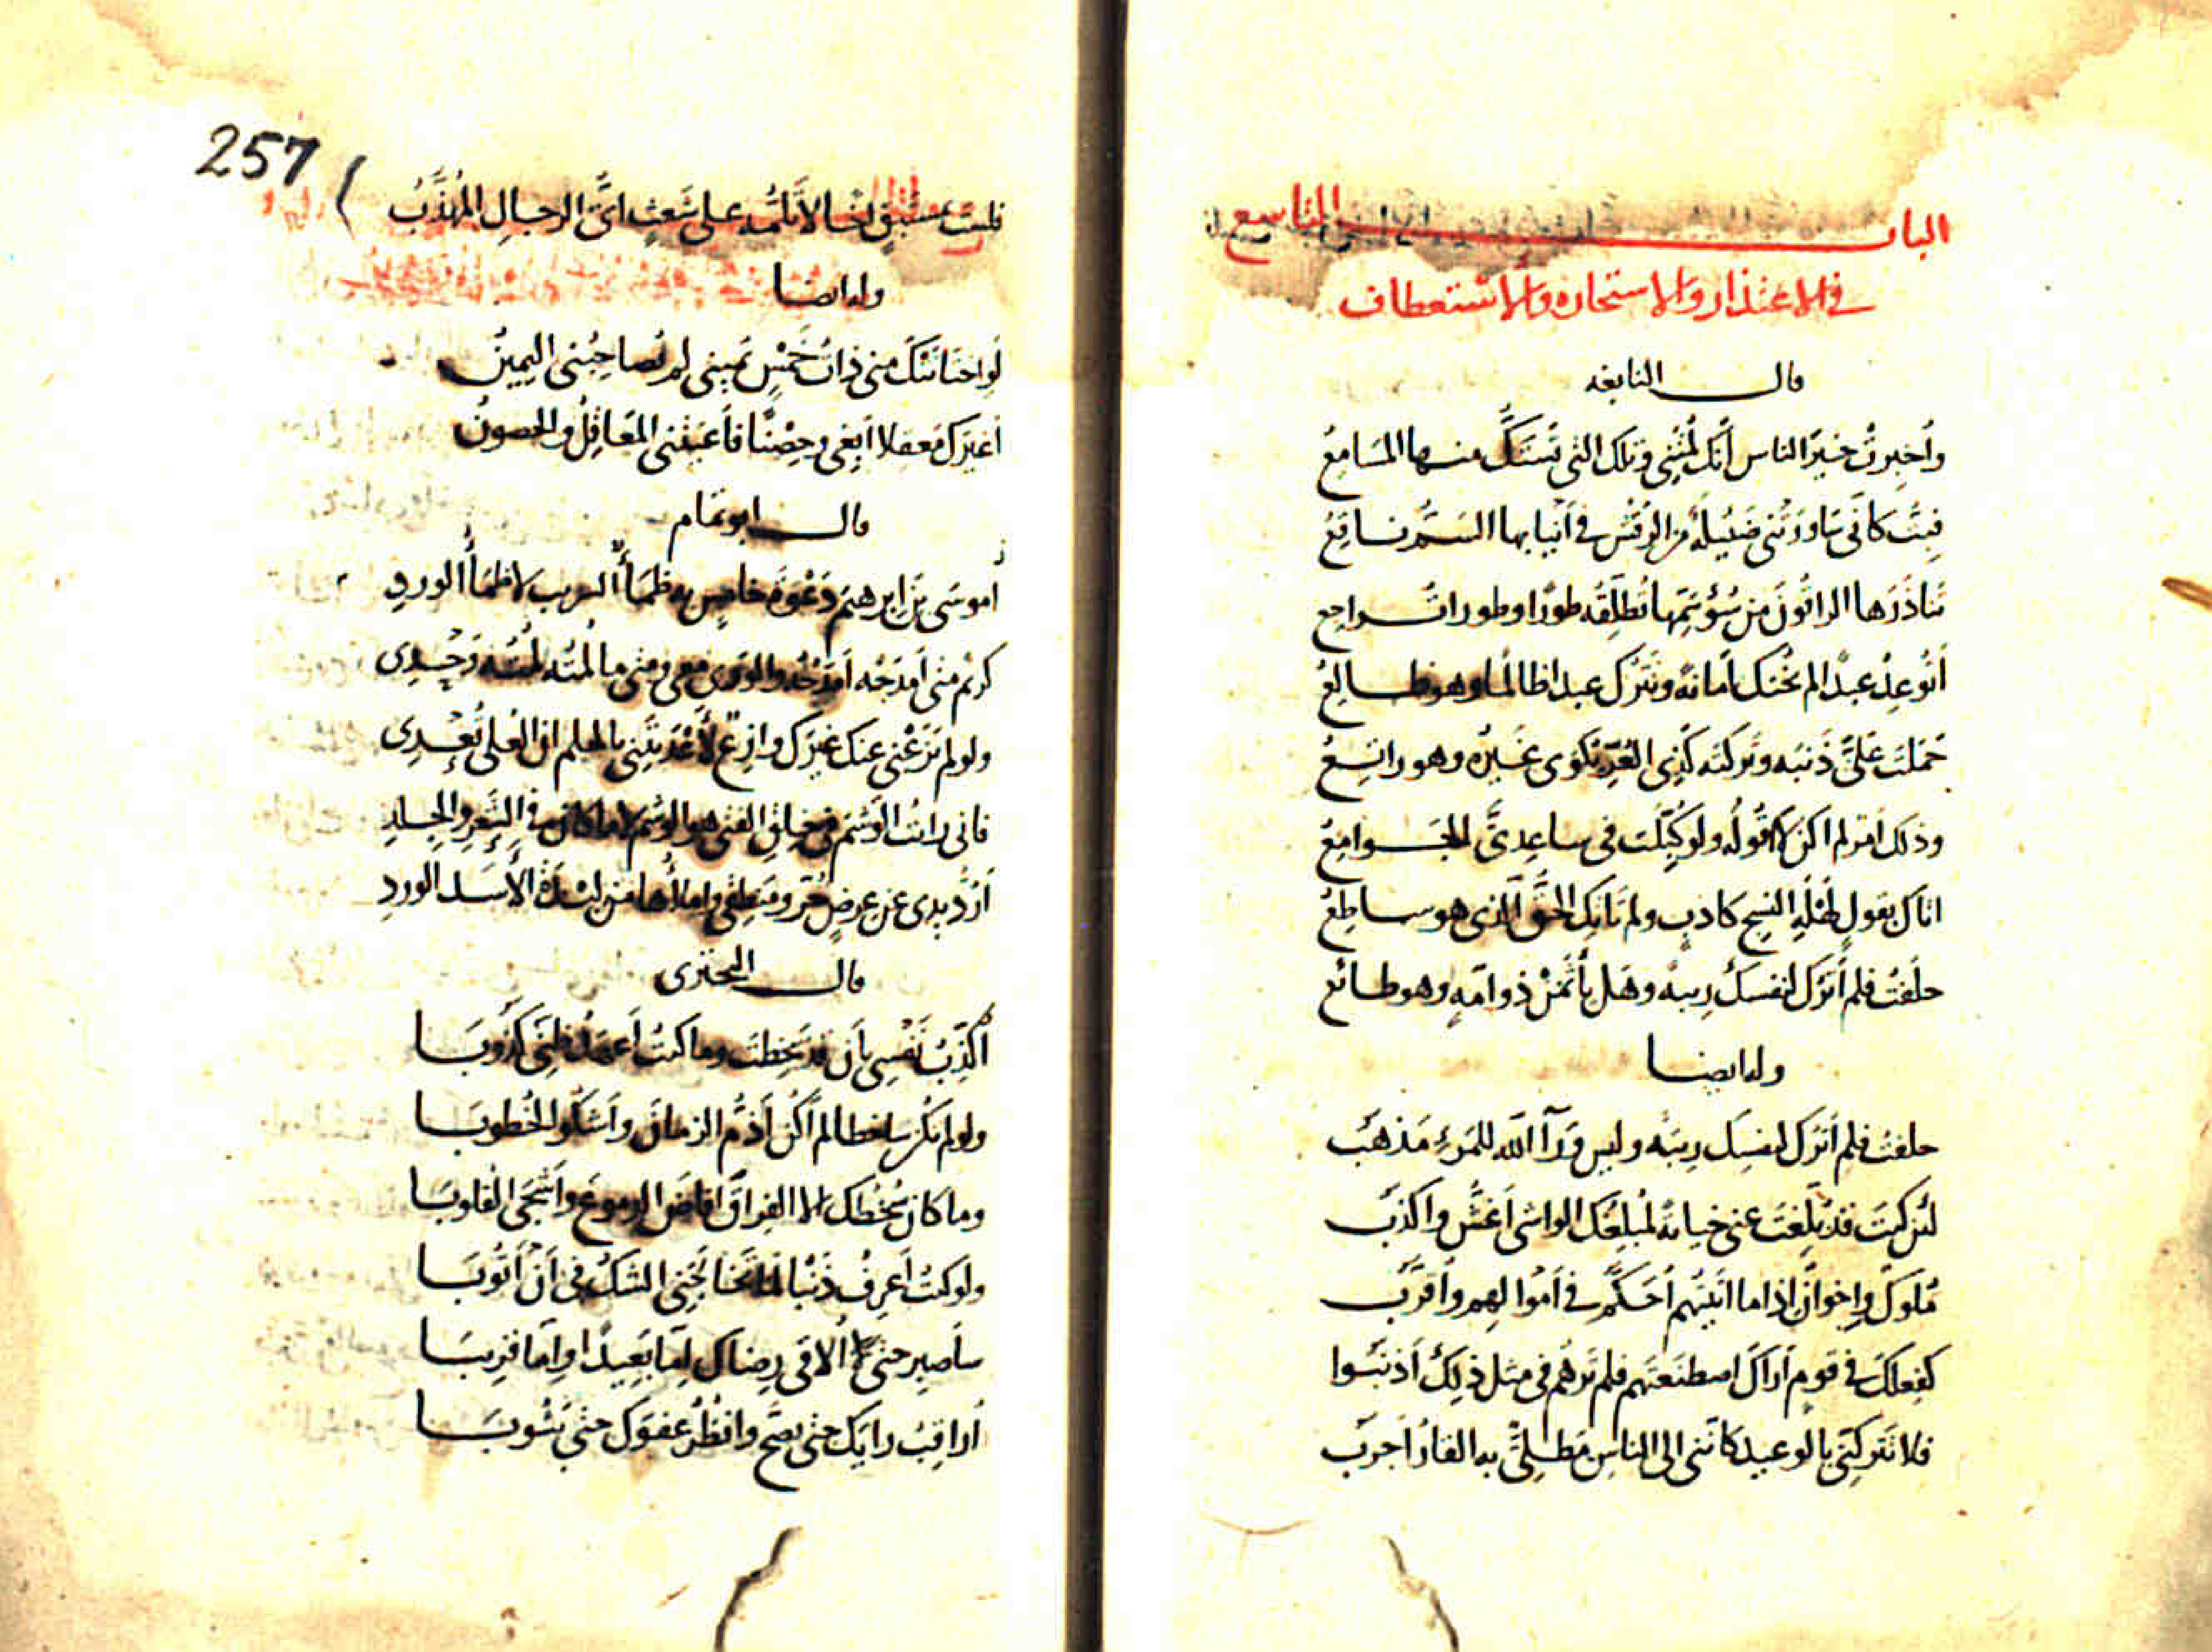 الباب التاسع
في الاعتذار والاستجارة والاستعطاف
قال النابغه
وأخبرت خير الناس أنك لمتني وتلك التي تستك منها المسامع
فبت كأني ساورتني ضئيلة من الرقش في أنيابها السم ناقع
تناذرها الراقون من سوء سمها تطلقه طورا وطورا تراجع
أتوعد عبدا لم يخنك أمانه وتترك عبدا ظالما وهو ظالع
حملت علي ذنبه وتركته كذي العر يكوى غيره وهو راتع
وذلك أمر لم اكن لأقوله ولو كبلت في ساعدي الجوامع
اتاك بقول هلهل النسج كاذب ولم يأتك الحق الذي هو ساطع
حلفت فلم أترك لنفسك ريبه وهل يأثمن ذو امه وهو طائع
وله ايضا
حلفت فلم أترك لنفسك ريبه وليس ورآ الله للمرء مذهب
لئن كنت قد بلغت عني خيانه لمبلغك الواشي أغش واكذب
ملوك وإخوان إذا ما أتيتهم أحكم في أموالهم وأقرب
كفعلك في قوم أراك اصطنعتهم فلم ترهم في مثل ذلك أذنبوا
فلا تتركني بالوعيد كأنني الى الناس مطلي به القار أجرب
257
فلست بمستبق اخا لا تلمه على شعث اي الرجال المهذب
وله ايضا
لو اختانتك مني ذات خمس يميني لم تصاحبني اليمين
أغيرك معقلا أبغي وحصنا فأعيتني المعاقل والحصون
قال ابو تمام
أموسى بن ابرهيم دعوة خامس به ظمأ التثريب لا ظمأ الورد
كريم متى أمدحه أمدحه والورى معي ومتى ما لمته لمته وحدي
ولو لم يزعني عنك غيرك وازع لأعديتني بالحلم ان العلى تعدي
فاني رأيت الوشم في خلق الفتى هو الوشم لا ما كان في الشعر والجلد
أرد يدي عن عرض حر ومنطقي واملأها من لبدة الأسد الورد
قال البحتري
أكذب نفسي بأن قد سخطت وما كنت أعهد ظني كذوبا
ولو لم تكن ساخطا لم أكن أذم الزمان وأشكو الخطوبا
وما كان سخطك الا الفراق أفاض الدموع وأشجى القلوبا
ولو كنت أعرف ذنبا لما تخالجني الشك في أن أتوبا
سأصبر حتى ألاقي رضاك إما بعيدا وإما قريبا
أراقب رأيك حتى يصح وانظر عفوك حتى يثوبا